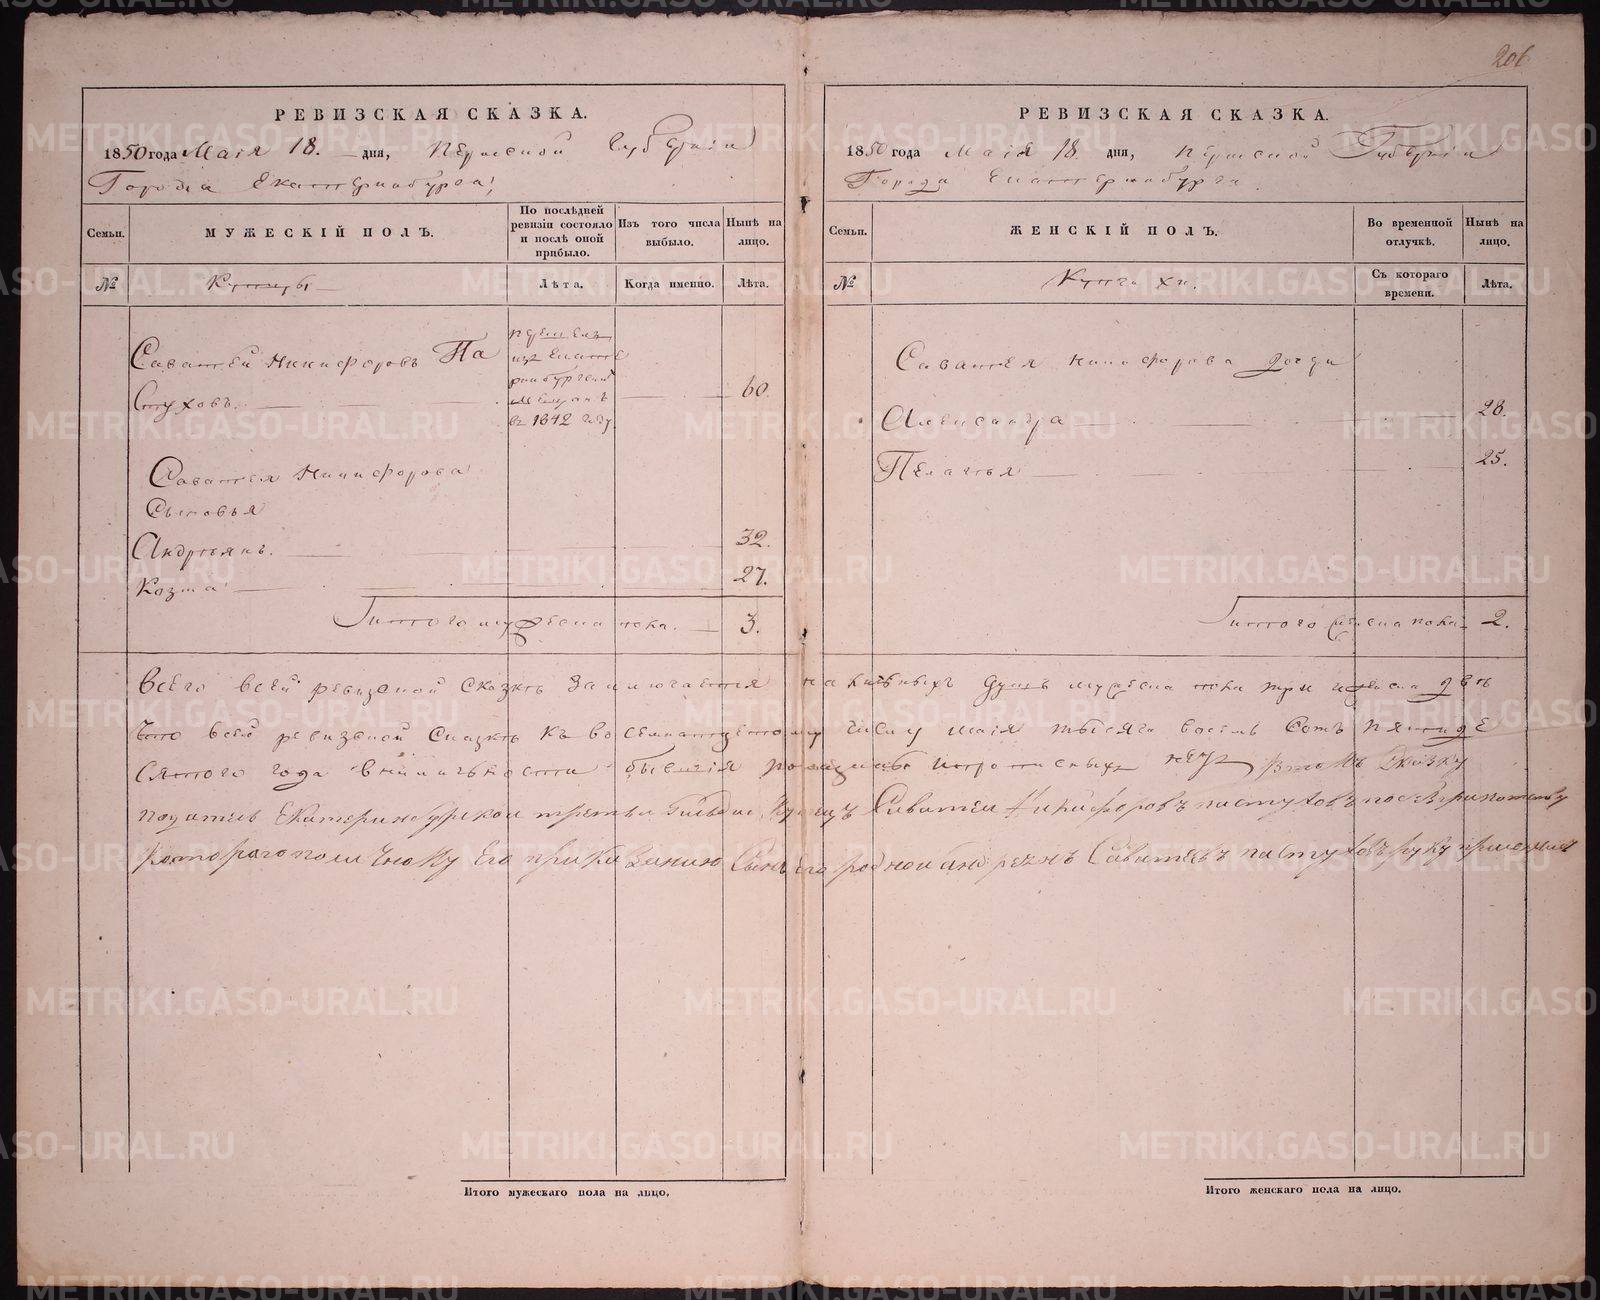 206
РЕВИЗСКАЯ СКАЗКА.
1850 года Маія 18. дня, Пермской Губерніи
Города Екатеринбурга
Семьи.
МУЖЕСКІЙ ПОЛЪ.
По послѣдней ревизіи состояло и послѣ оной прибыло.
Изъ того числа выбыло.
Нынѣ на лицо.
№
Купцы
Лѣта.
Когда именно.
Лѣта.
Саватей Никифоровъ Па
стуховъ.
перешелъ
изъ Екате
ринбургскихъ
мещанъ
въ 1842 году
60
Саватея Никифорова
Сыновья
Андреянъ. 32.
Козма 27.
Итого мужеска пола. 3.
РЕВИЗСКАЯ СКАЗКА.
1850 года Маія 18. дня, Пермской Губерніи
Города Екатеринбурга.
Семьи.
ЖЕНСКІЙ ПОЛЪ.
Во временной отлучкѣ.
Нынѣ на лицо.
№
Купчихи.
Съ котораго времени.
Лѣта.
Саватея Никифорова дочери
Александра 28.
Пелагья 25.
Итого женска пола 2.
Всего въ сей ревизской сказкѣ заключается наличныхъ душъ мужеска пола три женска двѣ
Что въ сей ревизской сказкѣ къ восемнадцатому числу маія тысяча восемь сотъ пятиде
сятого года въ наличности бывшія показаны и прописныхъ нетъ въ томъ сказку
податель Екатеринбургской третьи Гильдіи Купецъ Саватей Никифоровъ Пастуховъ
которого по личному его приказанию Сынъ его родной Андреянъ Саватеевъ Пастуховъ руку приложилъ
Итого мужескаго пола на лицо.
Итого женскаго пола на лицо.
METRIKI.GASO-URAL.RU